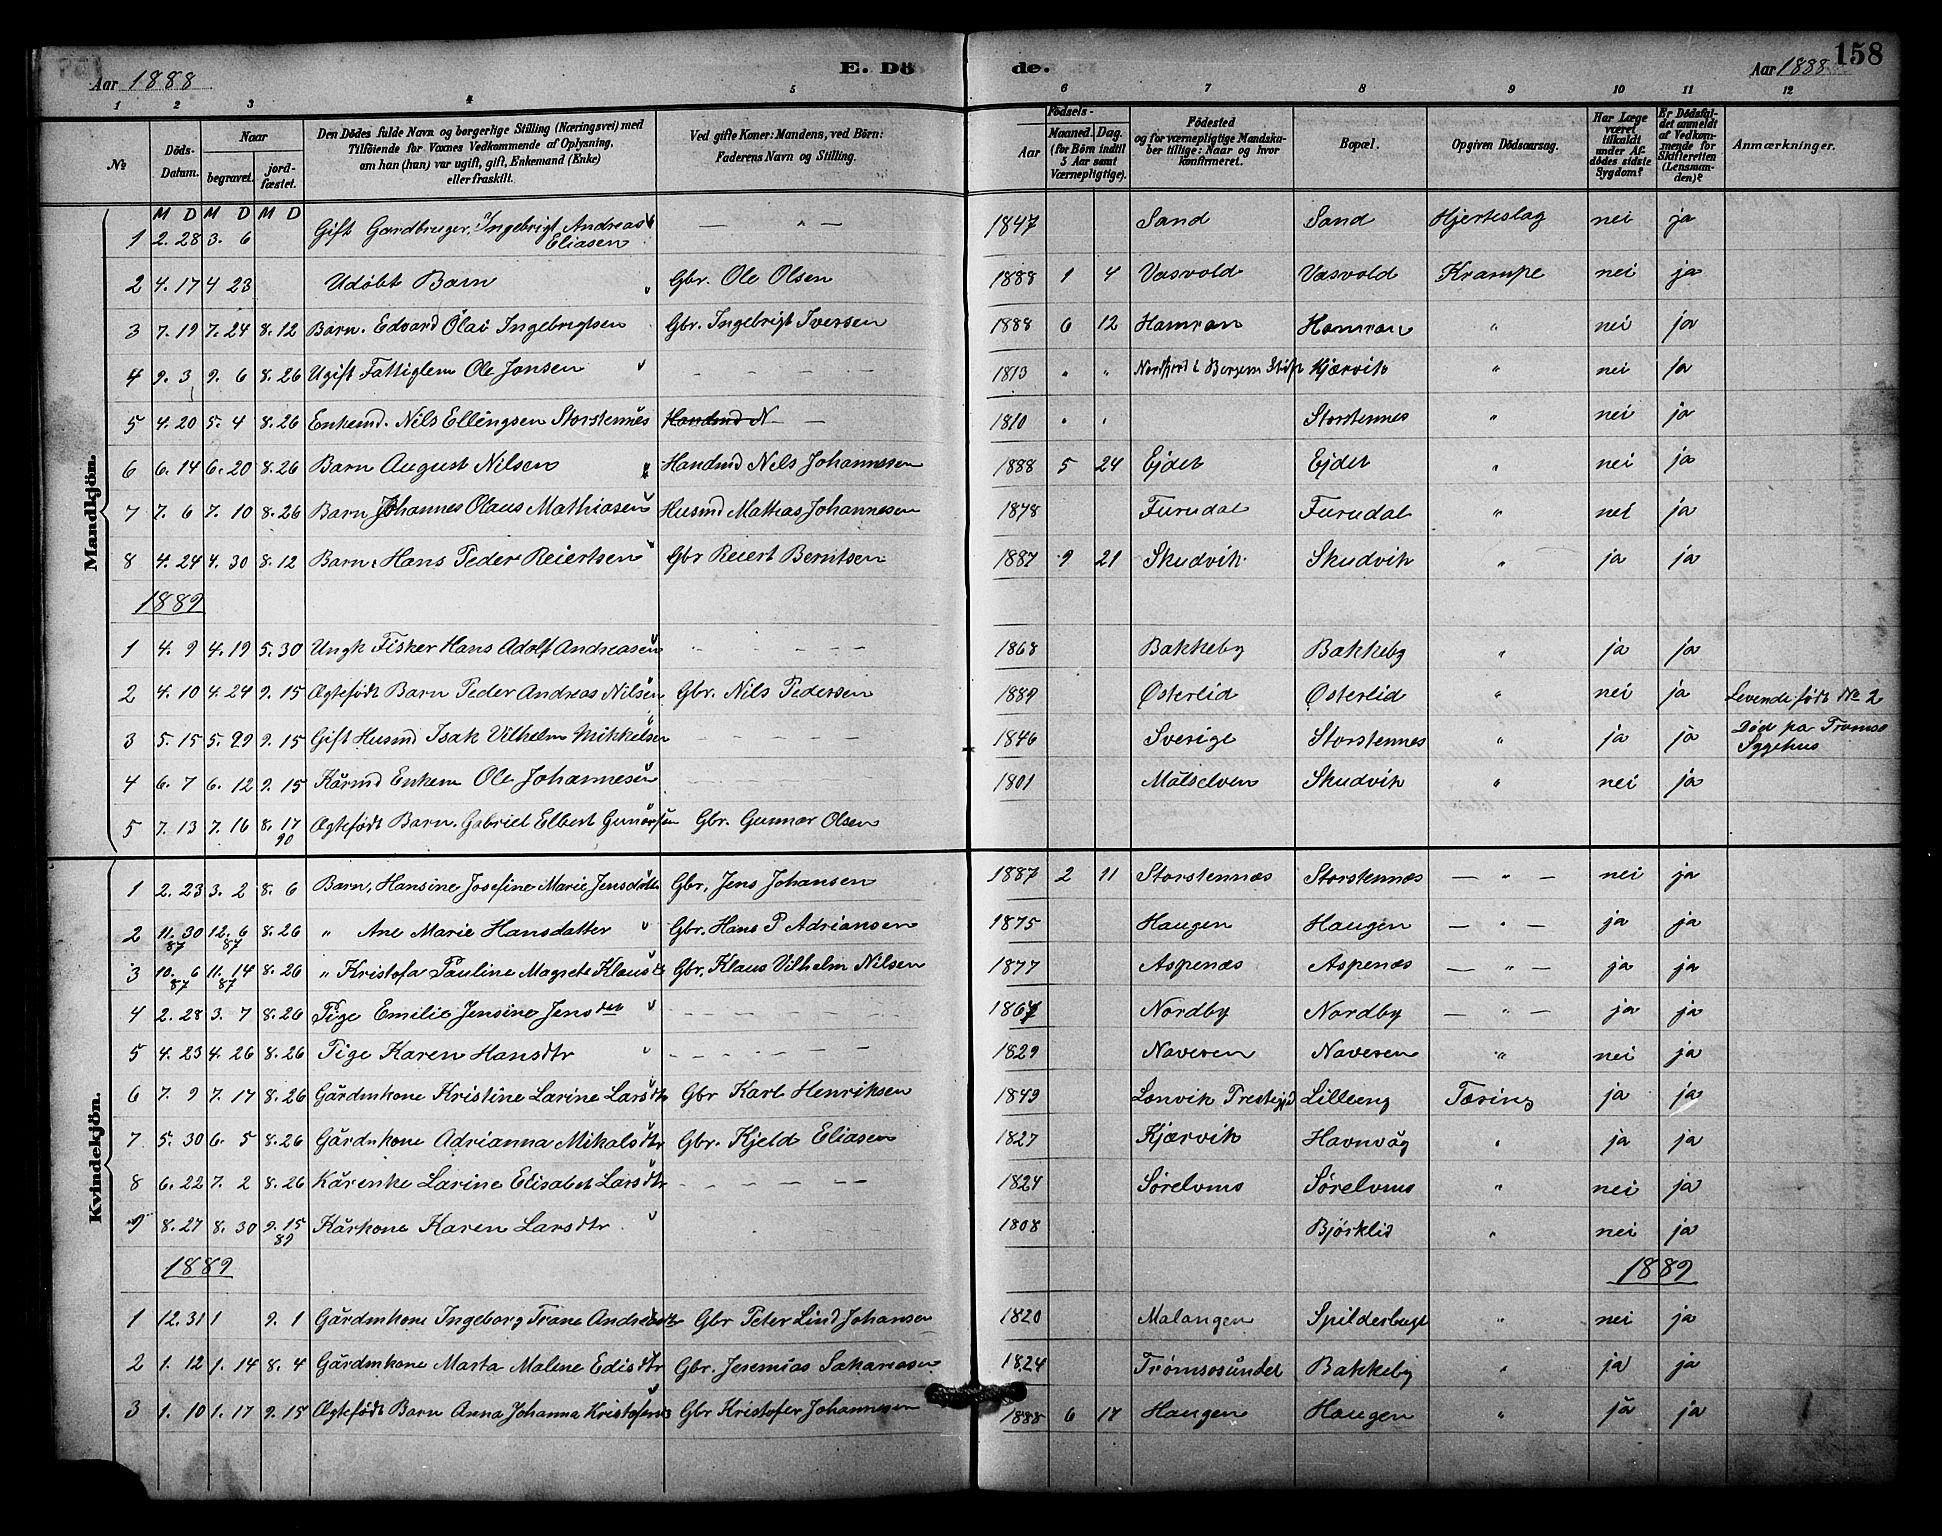 Aar 1888. E. Dö de. Aar 1888 158
1 2 3 4 5 6 7 8 9 10 11 12
No
Döds-Datum.
Naar
begravet.
jord-fæstet.
Den Dödes fulde Navn og borgerlige Stilling (Næringsvei) med
Tilföiende for Voxnes Vedkommende af Oplysning,
om han (hun) var ugift, gift, Enkemand (Enke)
eller fraskilt.
Ved gifte Koner: Mandens, ved Börn:
Faderens Navn og Stilling.
Födsels-
Aar
Maaned. Dag.
(for Börn indtil
5 Aar samt
Værnepligtige).
Födested
og for værnepligtige Mandska-
ber tillige: Naar og hvor
konfirmeret.
Bopæl.
Opgiven Dödsaarsag.
Har Læge
været
tilkaldt
under Af-
dödes sidste
Sygdom?
Er Dödsfal-
det anmeldt
af Vedkom-
mende for
Skifteretten
(Lensman-
den)?
Anmærkninger.
M D M D M D
Mandkjön.
1 2. 28 3. 6 Gift Gardbruger. Ingebrigt Andreas Eliasen — " — 1847 Sand Sand Hjerteslag nei ja
2 4. 17 4 23 Udöbt Barn Gbr. Ole Olsen 1888 1 4 Vasvold Vasvold Krampe nei ja
3 7. 19 7. 24 8. 12 Barn. Edvard Olai Ingebrigtsen Gbr. Ingebrigt Iversen 1888 6 12 Hamran Hamran " nei ja
4 9. 3 9. 6 8. 26 Ugift Fattiglem Ole Jonsen – – – – – 1813 " " Kjærvik " nei ja
5 4. 20 5. 4 8. 26 Enkemd. Nils Ellingsen Storstennes Handmd N – – 1810 " " Storstennes " nei ja
6 6. 14 6. 20 8. 26 Barn August Nilsen Handmd Nils Johannesen 1888 5 24 Ejdet Ejdet " nei ja
7 7. 6 7. 10 8. 26 Barn Johannes Olaus Mathiasen Husmd Mattias Johannesen 1878 Furudal Furudal " nei ja
8 4. 24 4. 30 8. 12 Barn. Hans Peder Reiertsen Gbr Reiert Berntsen 1887 9 21 Skudvik Skudvik " ja ja
1889
1 4. 9 4. 19 5. 30 Ungk Fisker Hans Adolf Andreasen – – – – – 1868 Bakkeby Bakkeby " ja ja
2 4. 10 4. 24 9. 15 Ægtefødt Barn Peder Andreas Nilsen Gbr. Nils Pedersen 1889 Østerlid Østerlid " nei ja Levende født No 2
3 5. 15 5. 29 9. 15 Gift Husmd Isak Vilhelm Mikkelsen – – – – – 1846 Sverige Storstennes " ja ja Død pa Tromsø Sygehus
4 6. 7 6. 12 9. 15 Kårmd Enkem Ole Johannesen – – – – – 1801 Målselven Skudvik " nei ja
5 7. 13 7. 16 8. 17 90 Ægtefødt Barn. Gabriel Elbert Gunarsen Gbr. Gunnar Olsen
Kvindekjön.
1 2. 23 3. 2 8. 6 Barn, Hansine Josefine Marie Jensdtr Gbr. Jens Johansen 1887 2 11 Storstennæs Storstennæs — " — nei ja
2 11. 30 87 12. 6 87 8. 26 " Ane Marie Hansdatter Gbr. Hans P Adriansen 1875 Haugen Haugen — " — ja ja
3 10. 6 87 11. 14 87 8. 26 " Kristofa Pauline Magrete Klausdtr Gbr. Klaus Vilhelm Nilsen 1877 Aspenæs Aspenæs — " — ja ja
4 2. 28 3. 7 8. 26 Pige Emilie Jensine Jensdtr – – – – – 1867 Nordby Nordby — " — ja ja
5 4. 23 4. 26 8. 26 Pige Karen Hansdtr – – – – – 1829 Naveren Naveren " nei ja
6 7. 9 7. 17 8. 26 Gårdmkone Kristine Larine Larsdtr Gbr Karl Henriksen 1849 Lenvik Prestegjd Lilleng Tæring ja ja
7 5. 30 6. 5 8. 26 Gårdmkone Adrianna Mikalsdtr Gbr. Kjeld Eliasen 1827 Kjærvik Havnvåg " ja ja
8 6. 22 7. 2 8. 26 Kårenke Larine Elisabet Larsdtr – – – – – 1824 Sørelvmo Sørelvmo " nei ja
9 8. 27 8. 30 9. 15 89 Kårkone Karen Larsdtr 1808 Bjørklid " nei ja
1889 1889
1 12. 31 1 9. 1 Gårdmkone Ingeborg Trane Andreasdtr Gbr Peter Lind Johansen 1820 Malangen Spilderbugt " nei ja
2 1. 12 1. 14 8. 4 Gårdmkone Marta Malene Edisdtr Gbr. Jeremias Sakariasen 1824 Tromsosundet Bakkeby " ja ja
3 1. 10 1. 17 9. 15 Ægtefødt Barn Anna Johanna Kristofersd Gbr Kristofer Johannesen 1888 6 17 Haugen Haugen " ja ja